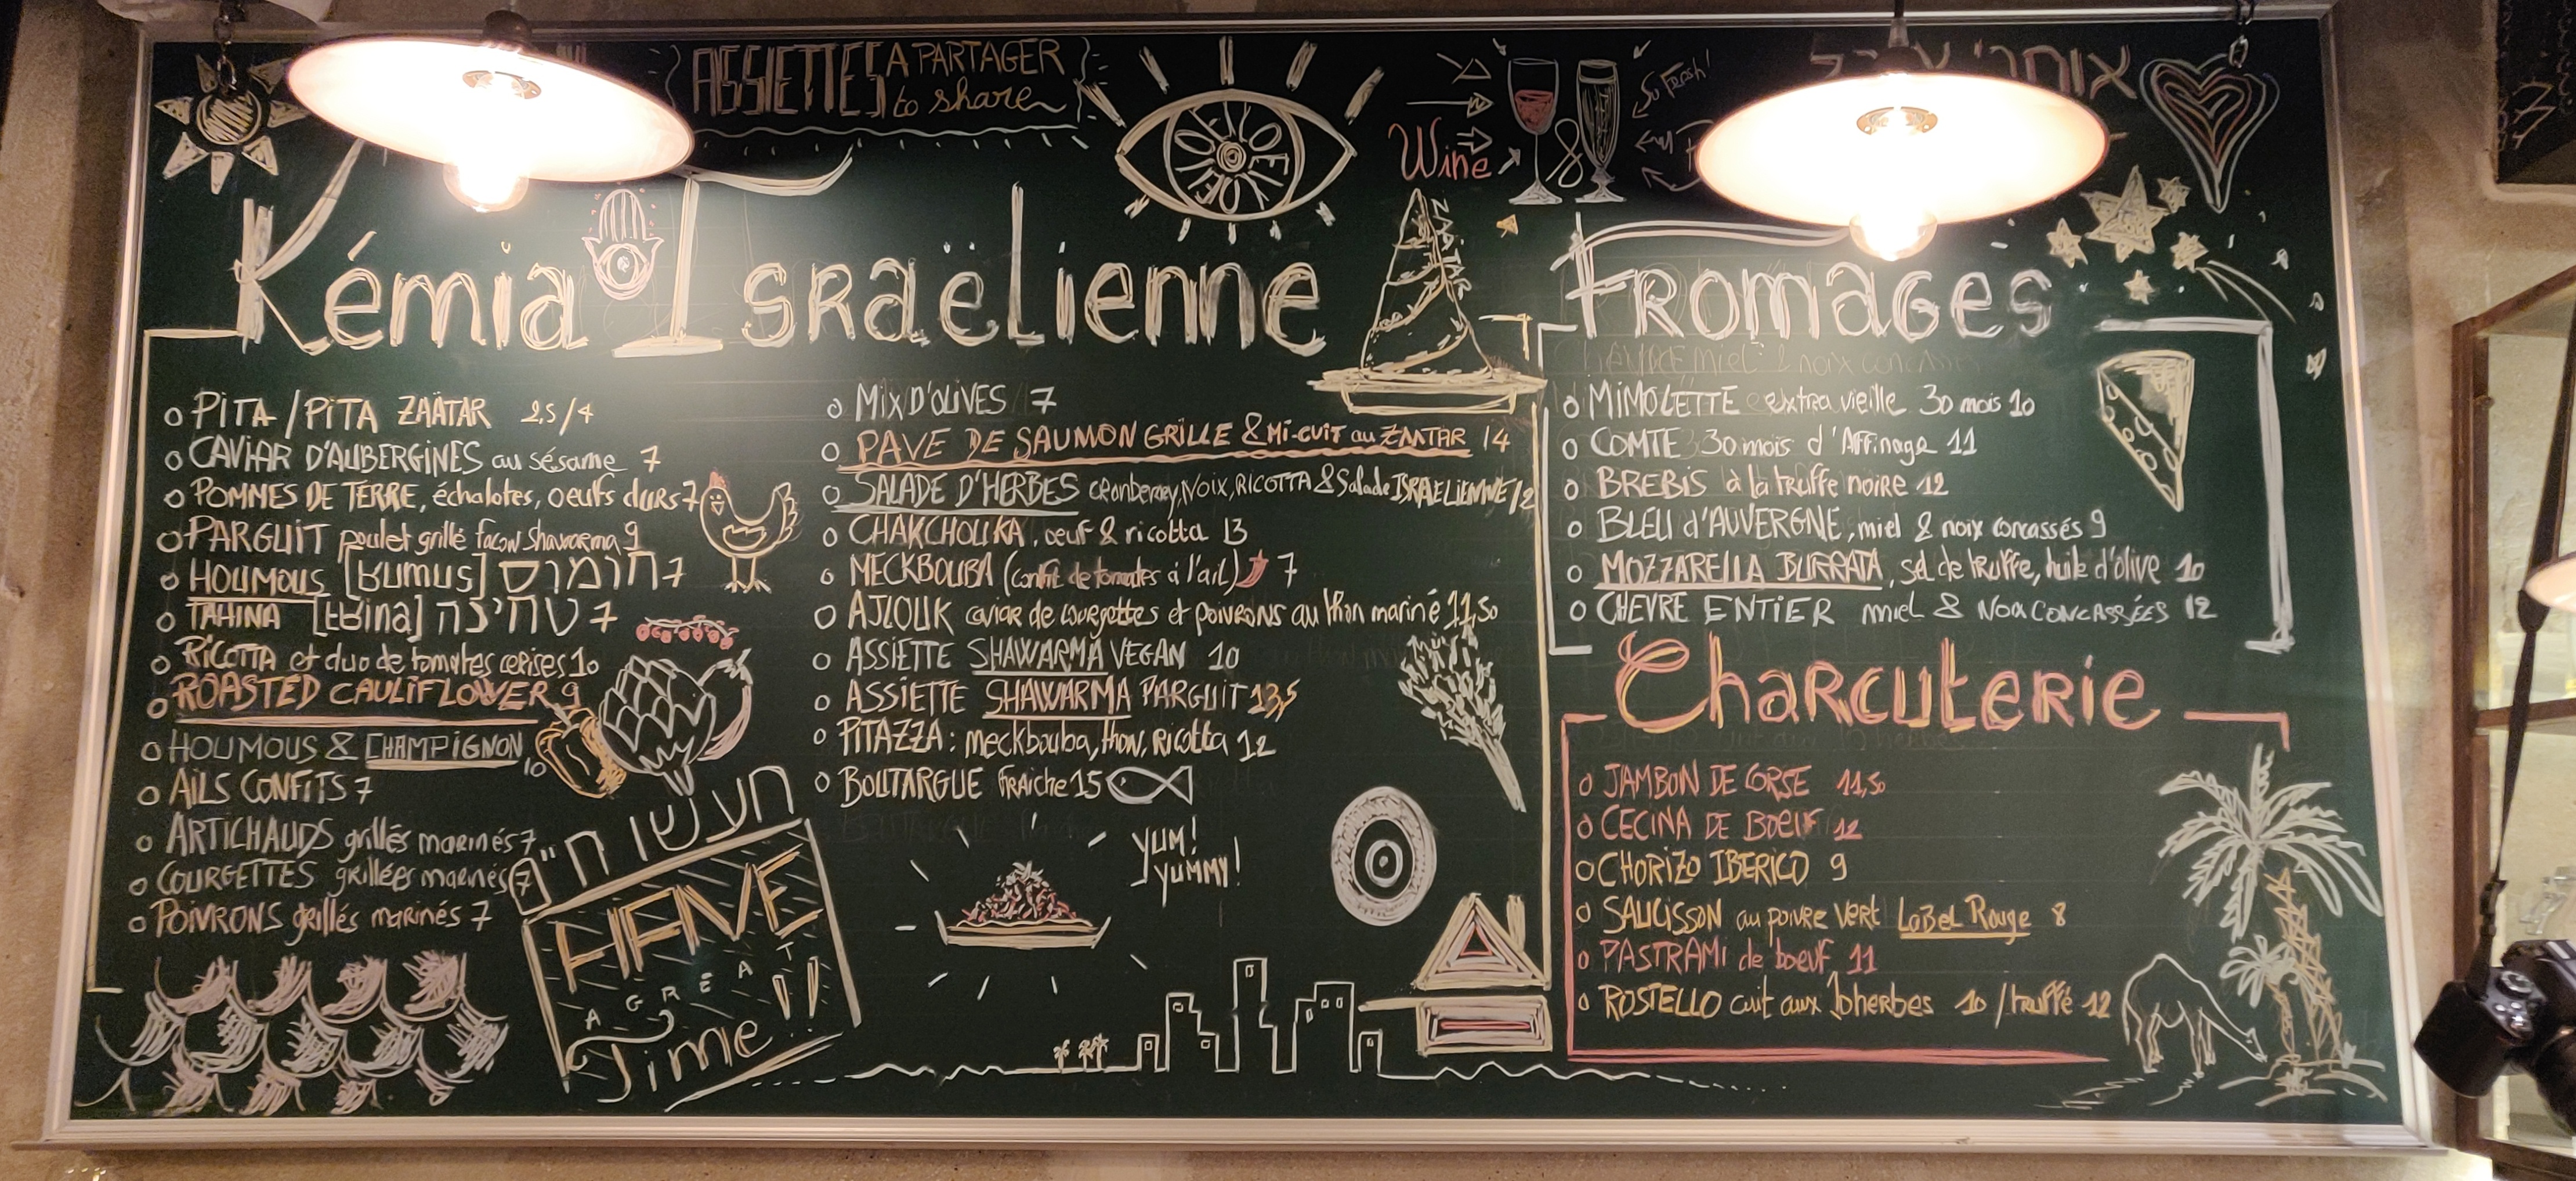 ASSIETTES A PARTAGER
to share
Wine & So Fresh!
אוהבי
ZAATAR
Kémia Israëlienne
PITA / PITA ZAÄTAR 2,5/4
CAVIAR D'AUBERGINES au sésame 7
POMMES DE TERRE, échalotes, oeufs durs 7
PARGUIT poulet grillé façon Shawarma 9
HOUMOUS [ʁumus] חומוס 7
TAHINA [tʁina] טחינה 7
RICOTTA et duo de tomates cerises 10
ROASTED CAULIFLOWER 9
HOUMOUS & CHAMPIGNON 10
AILS CONFITS 7
ARTICHAUDS grillés marinés 7
COURGETTES grillées marinés 7
POIVRONS grillés marinés 7
תעשו חיים
HAVE
A GREAT
Time!!
MIX D'OLIVES 7
PAVE DE SAUMON GRILLE & Mi-cuit au ZAATAR 14
SALADE D'HERBES cranberry, Noix, RICOTTA & Salade ISRAELIENNE 12
CHAKCHOUKA, oeuf & ricotta 13
MECKBOUBA (confit de tomates à l'ail) 7
AJLOUK caviar de courgettes et poivrons au thon mariné 11,50
ASSIETTE SHAWARMA VEGAN 10
ASSIETTE SHAWARMA PARGUIT 13,5
PITAZZA: meckbouba, thon, ricotta 12
BOUTARGUE fraiche 15
YUM!
YUMMY!
Fromages
MIMOLETTE extra vieille 30 mois 10
COMTE 30 mois d'Affinage 11
BREBIS à la truffe noire 12
BLEU d'AUVERGNE, miel & noix concassés 9
MOZZARELLA BURRATA, sel de truffe, huile d'olive 10
CHEVRE ENTIER miel & NOIX CONCASSÉES 12
Charcuterie
JAMBON DE CORSE 11,50
CECINA DE BOEUF 12
CHORIZO IBERICO 9
SAUCISSON au poivre vert LABEL Rouge 8
PASTRAMI de boeuf 11
ROSTELLO cuit aux 10 herbes 10 / truffé 12